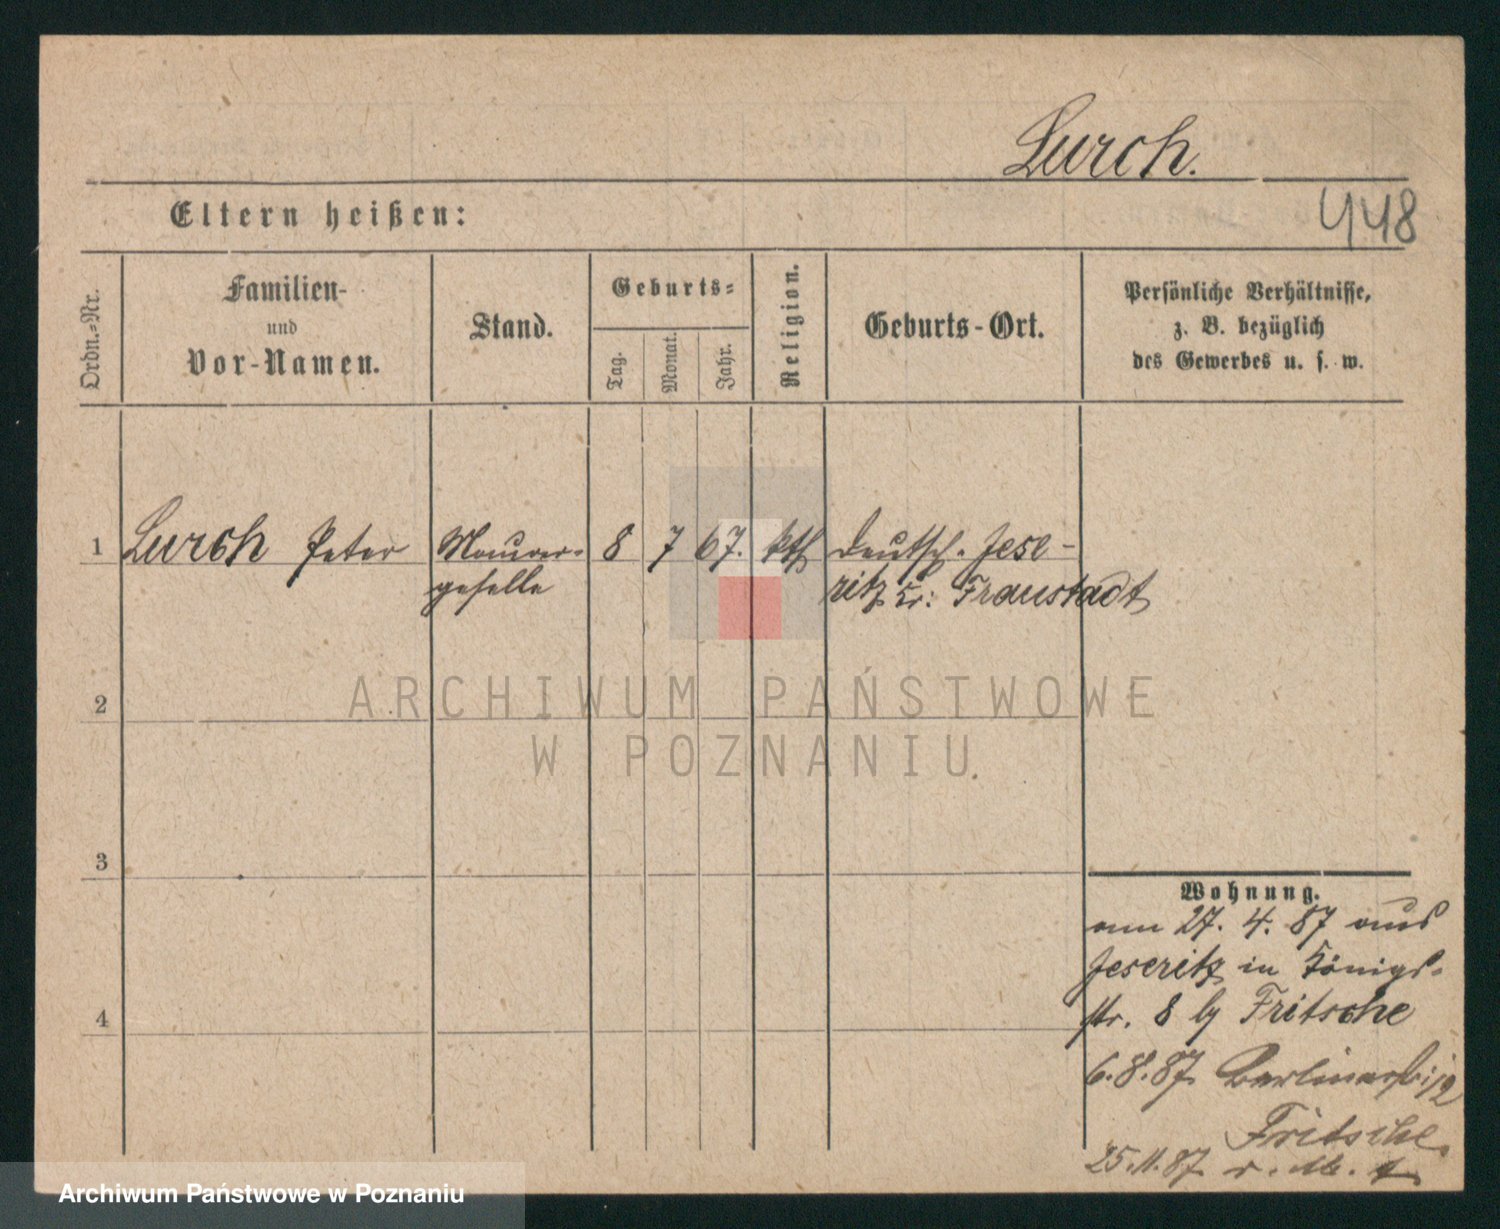 Lurch.
Eltern heißen:
448
Ordn.-Nr.
Familien-
und
Vor-Namen.
Stand.
Geburts-
Tag.
Monat.
Jahr.
Religion.
Geburts-Ort.
Persönliche Verhältnisse,
z. B. bezüglich
des Gewerbes u. s. w.
1 Lurch Peter Maurer- 8 7 67. kth Deutsch-Jese-
geselle ritz Kr: Fraustadt
2
ARCHIWUM PAŃSTWOWE
W POZNANIU
3
Wohnung.
am 27. 4. 87 aus
Jeseritz in Königs-
str. 8 by Fritsche
4
6.8.87
Fritsche
25.11.87
Archiwum Państwowe w Poznaniu